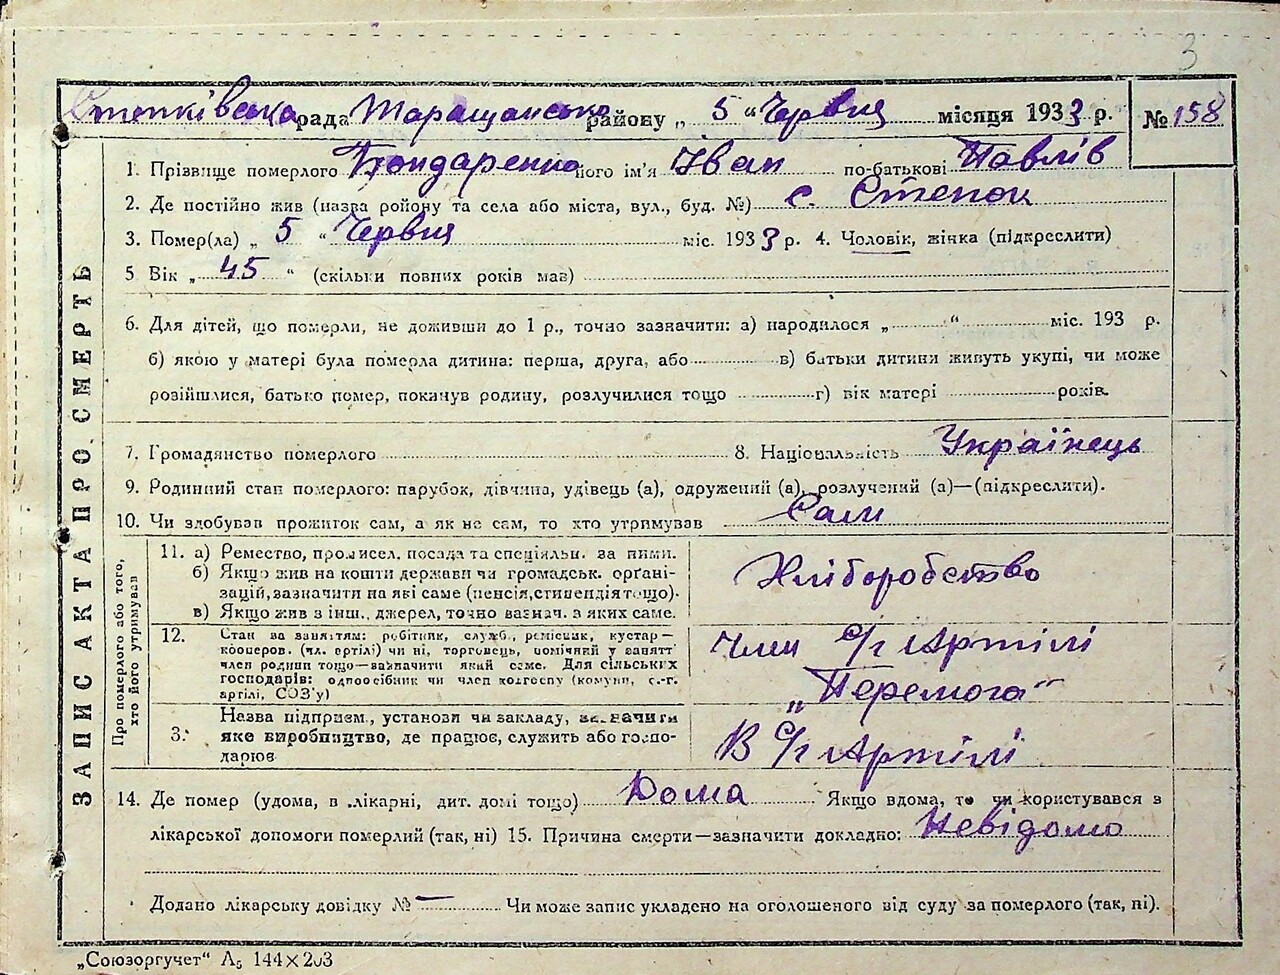 3
Степківська рада Таращансько району „ 5 “ Червня місяця 1933 р. № 158
ЗАПИС АКТА ПРО СМЕРТЬ
1. Прізвище померлого Бондаренко його ім'я Іван по-батькові Павлів
2. Де постійно жив (назва ройону та села або міста, вул., буд. №) с. Степок
3. Помер(ла) „ 5 “ Червня міс. 1933 р. 4. Чоловік, жінка (підкреслити)
5 Вік „ 45 “ (скільки повних років мав)
6. Для дітей, що померли, не доживши до 1 р., точно зазначити: а) народилося „ “ міс. 193 р.
б) якою у матері була померла дитина: перша, друга, або в) батьки дитини живуть укупі, чи може
розійшлися, батько помер, покинув родину, розлучилися тощо г) вік матері років.
7. Громадянство померлого 8. Національність Українець
9. Родинний стан померлого: парубок, дівчина, удівець (а), одружений (а), розлучений (а)—(підкреслити).
10. Чи здобував прожиток сам, а як не сам, то хто утримував Сам
Про померлого або того,
хто його утримував
11. а) Ремество, промисел, посада та спеціяльн. за ними.
б) Якщо жив на кошти держави чи громадськ. орґані-
зацій, зазначити на які саме (пенсія, стипендія тощо).
в) Якщо жив з інш. джерел, точно вазнач. з яких саме.
Хліборобство
12. Стан за заняттям: робітник, служб., ремісник, кустар—
кооперов. (чл. артілі) чи ні, торговець, помічний у занятт
член родини тощо—зазначити який саме. Для сільських
господарів: одноосібник чи член колгоспу (комуни, с.-г.
артілі, СОЗ'у)
Член с/г Артілі
„Перемога“
3. Назва підприєм., установи чи закладу, зазначити
яке виробництво, де працює, служить або госпо-
дарює
В с/г Артілі
14. Де помер (удома, в лікарні, дит. домі тощо) Дома Якщо вдома, то чи користувався з
лікарської допомоги померлий (так, ні) 15. Причина смерти—зазначити докладно: Невідомо
Додано лікарську довідку № — Чи може запис укладено на оголошеного від суду за померлого (так, ні).
„Союзоргучет“ А₅ 144×203